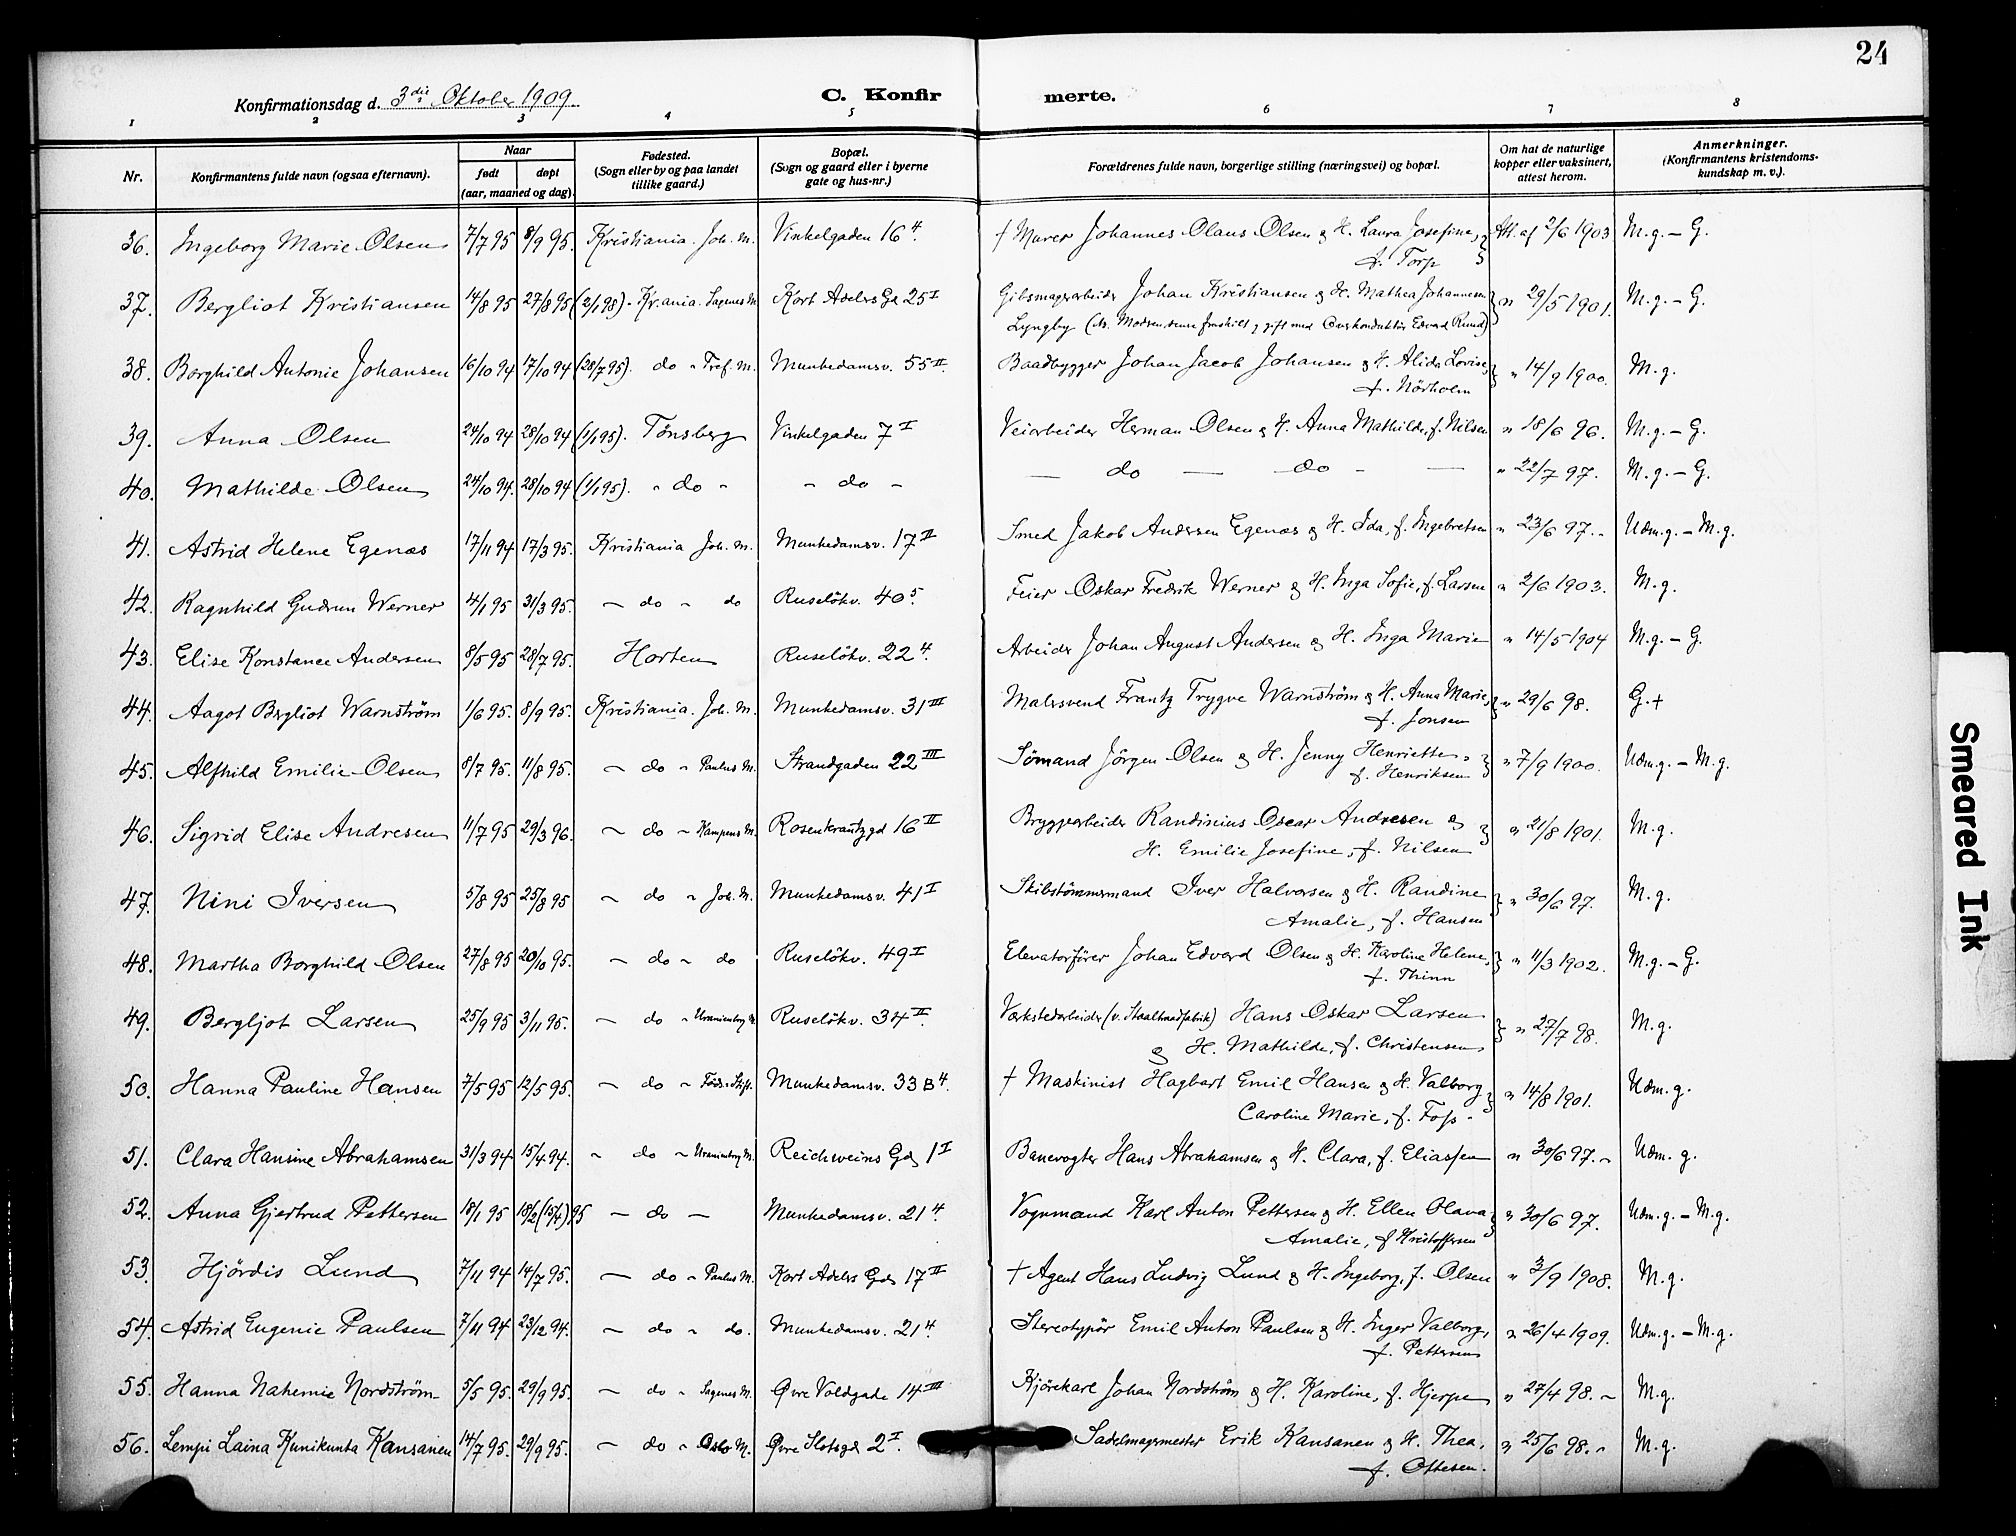 24
Konfirmationsdag d. 3die Oktober 1909.
C. Konfir merte.
1 2 3 4 5 6 7 8
Nr. Konfirmantens fulde navn (ogsaa efternavn). Naar født døpt (aar, maaned og dag). Fødested. (Sogn eller by og paa landet tillike gaard.) Bopæl. (Sogn og gaard eller i byerne gate og hus-nr.) Forældrenes fulde navn, borgerlige stilling (næringsvei) og bopæl. Om hat de naturlige kopper eller vaksinert, attest herom. Anmerkninger. (Konfirmantens kristendoms-kundskap m. v.).
36. Ingeborg Marie Olsen 7/7 95 8/9 95. Kristiania. Joh. M. Vinkelgaden 16 4. † Murer Johannes Olaus Olsen & H. Laura Josefine, Att. af 2/6 1903 M.g. – G.
f. Torp
37. Bergliot Kristiansen 14/8 95 27/8 95 (2/1 98). Kr.ania. Sagenes M. Kort Adelers Gd 25 I Gibsmagerarbeider Johan Kristiansen & H. Mathea Johannesen " 29/5 1901. M.g. – G.
Lyngby
38. Borghild Antonie Johansen 16/10 94 17/10 94 (28/7 95). do " Tref. M. Munkedamsv. 55 II. Baadbygger Johan Jacob Johansen & H. Alida Lovise, " 14/9 1900. M.g.
f. Nörholm
39. Anna Olsen 24/10 94 28/10 94 (1/1 95). Tönsberg Vinkelgaden 7 I Veiarbeider Herman Olsen & H. Anna Mathilde, f. Nilsen " 18/6 96. M.g. – G.
40. Mathilde Olsen 24/10 94. 28/10 94 (1/1 95). " do " " do " — do — do – — " 22/7 97. M.g. – G.
41. Astrid Helene Egenæs 17/11 94 17/3 95. Kristiania Joh. M. Munkedamsv. 17 II Smed Jakob Andersen Egenæs & H. Ida, f. Ingebretsen " 23/6 97. Udm.g. – M.g.
42. Ragnhild Gudrun Werner 4/1 95 31/3 95. – do " do Ruselökv. 40 5. Feier Oskar Fredrik Werner & H. Inga Sofie, f. Larsen " 2/6 1903. M.g.
43. Elise Konstance Andersen 8/5 95 28/7 95. Horten Ruselökv. 22 4. Arbeider Johan August Andersen & H. Inga Marie " 14/5 1904 M.g. – G.
44. Aagot Bergliot Warnström 1/6 95. 8/9 95. Kristiania. Joh. M. Munkedamsv. 31 III Malersvend Frantz Trygve Warnström & H. Anna Marie, " 29/6 98. G.+
f. Jonsen
45. Alfhild Emilie Olsen 8/7 95. 11/8 95. – do " Paulus M. Strandgaden 22 III Sömand Jörgen Olsen & H. Jenny Henriette " 7/9 1900. Udm.g. – M.g.
f. Henriksen
46. Sigrid Elise Andresen 11/7 95 29/3 96. – do " Kampens M. Rosenkrantzgd 16 II Bryggearbeider Randinius Oscar Andresen & " 21/8 1901. M.g.
H. Emilie Josefine, f. Nilsen
47. Nini Iversen 5/8 95 25/8 95 – do " Joh. M. Munkedamsv. 41 I Skibstömmermand Iver Halvorsen & H. Randine " 30/6 97. M.g.
Amalie, f. Hansen
48. Martha Borghild Olsen 27/8 95 20/10 95. – do " do Ruselökv. 49 I Elevatorförer Johan Edvard Olsen & H. Karoline Helene, " 11/3 1902. M.g. – G.
f. Thinn
49. Bergljot Larsen 25/9 95 3/11 95. – do " Uranienborg M. Ruselökv. 34 II. Verkstedarbeider (v. Staaltraadfabrik) Hans Oskar Larsen " 27/7 98. M.g.
& H. Mathilde, f. Christensen
50. Hanna Pauline Hansen 7/5 95 12/5 95. – do " Föds. Stift. Munkedamsv. 33 B 4. † Maskinist Hagbart Emil Hansen & H. Valborg " 14/8 1901. Udm.g.
Caroline Marie, f. Foss.
51. Clara Hansine Abrahamsen 31/3 94 15/4 94. " do " Uranienborg M. Reichweins Gd 1 I Banevogter Hans Abrahamsen & H. Clara, f. Eliassen " 30/6 97. Udm. g.
52. Anna Gjertrud Pettersen 18/1 95 18/2 (15/4) 95 – do – Munkedamsv. 21 4. Vognmand Karl Anton Pettersen & H. Ellen Olava " 30/6 97. Udm.g. – M.g.
Amalie, f. Kristoffersen
53. Hjördis Lund 7/11 94 14/7 95. – do " Paulus M. Kort Adelers Gd 17 II † Agent Hans Ludvig Lund & H. Ingeborg, f. Olsen " 3/9 1908. M.g.
54. Astrid Eugenie Paulsen 7/11 94 23/12 94. – do " do. Munkedamsv. 21 4. Stereotypör Emil Anton Paulsen & H. Inger Valborg, " 26/4 1909. Udm.g. – M.g.
f. Pettersen
55. Hanna Nahemie Nordström 5/5 95. 29/9 95. – do " Sagenes M. Øvre Voldgade 14 III Kjörekarl Johan Nordström & H. Karoline, f. Hjerpe " 27/4 98. M.g.
56. Lempi Laina Kunikunta Kansanen 14/7 95. 29/9 95. – do " Oslo M. Øvre Slotsgd 2 I. Sadelmagermester Erik Kansanen & H. Thea, " 25/6 98. M.g.
f. Ottesen.
Smeared Ink